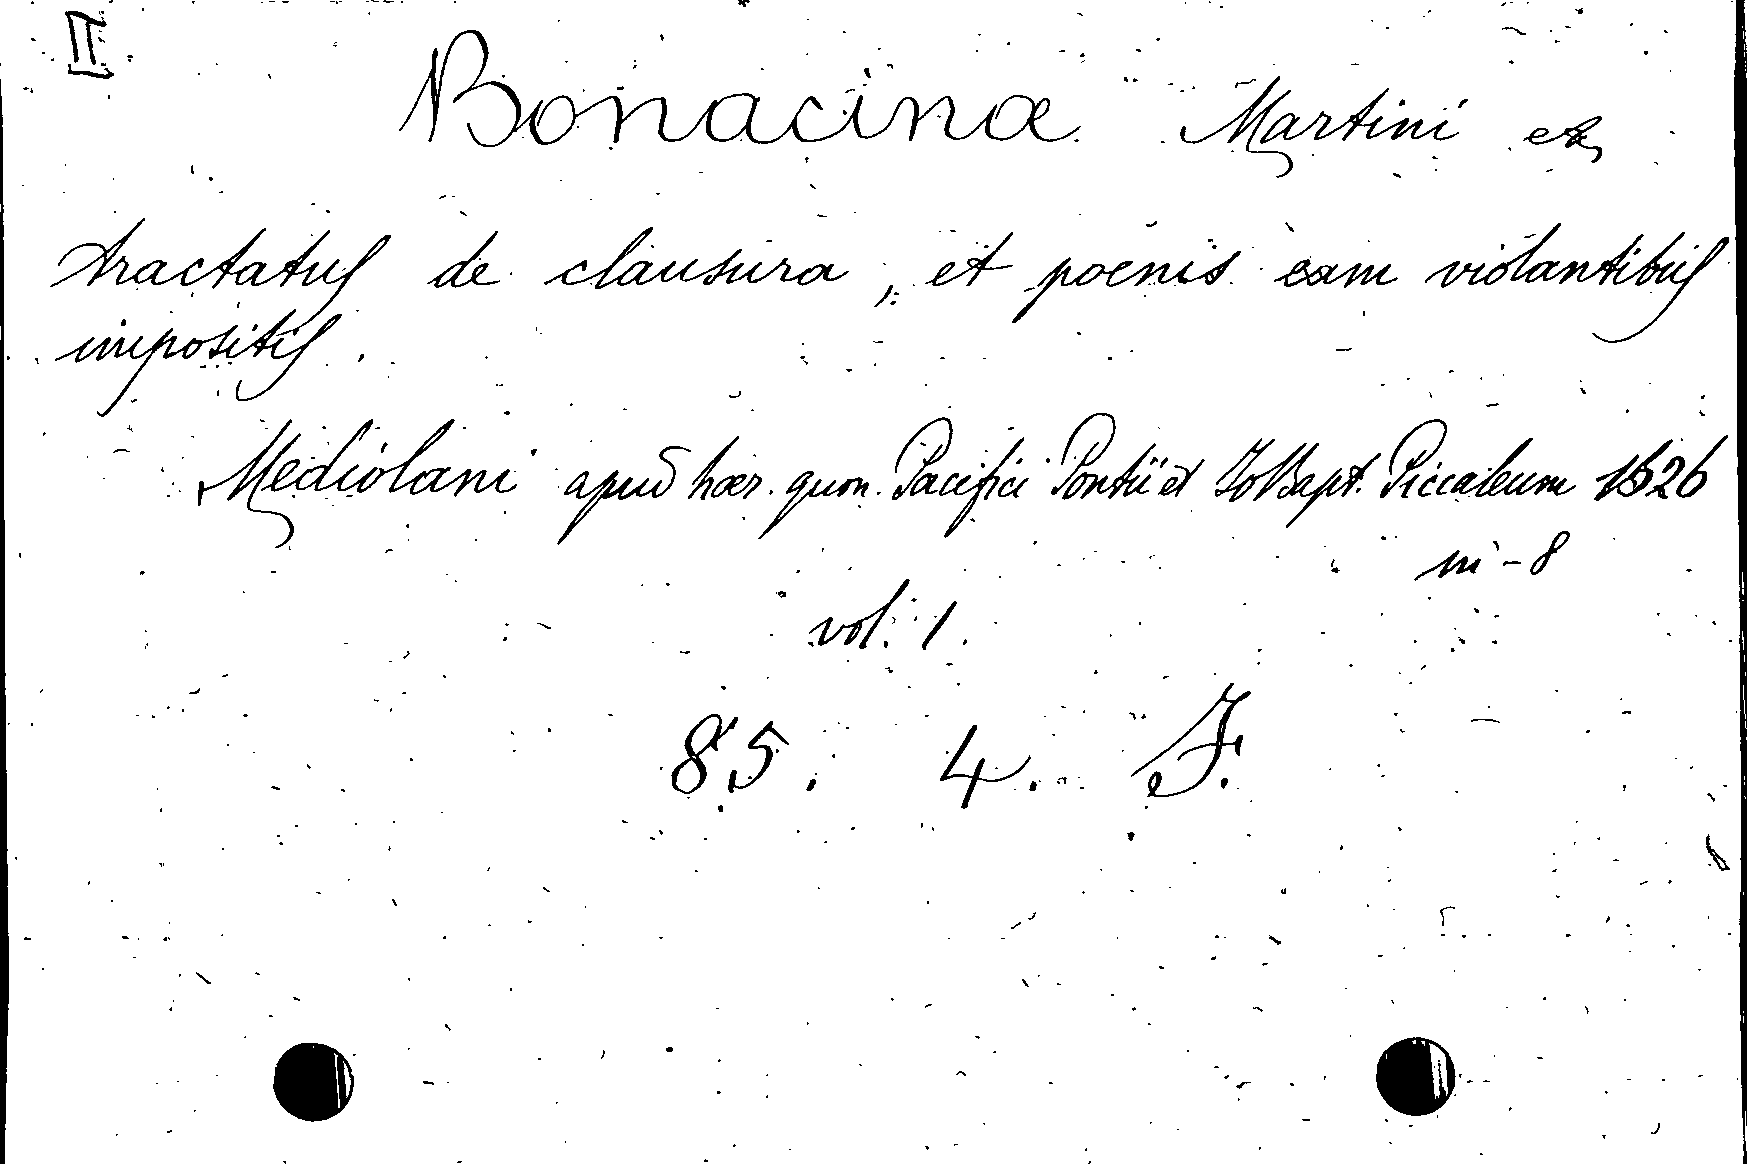 II
Bonacinæ Martini etc
tractatus de clausura, et poenis eam violantibus
impositis.
Mediolani apud hær. quon. Pacifici Pontii et Jo Bapt. Piccaleum 1626
in-8
vol. 1.
85. 4. F.